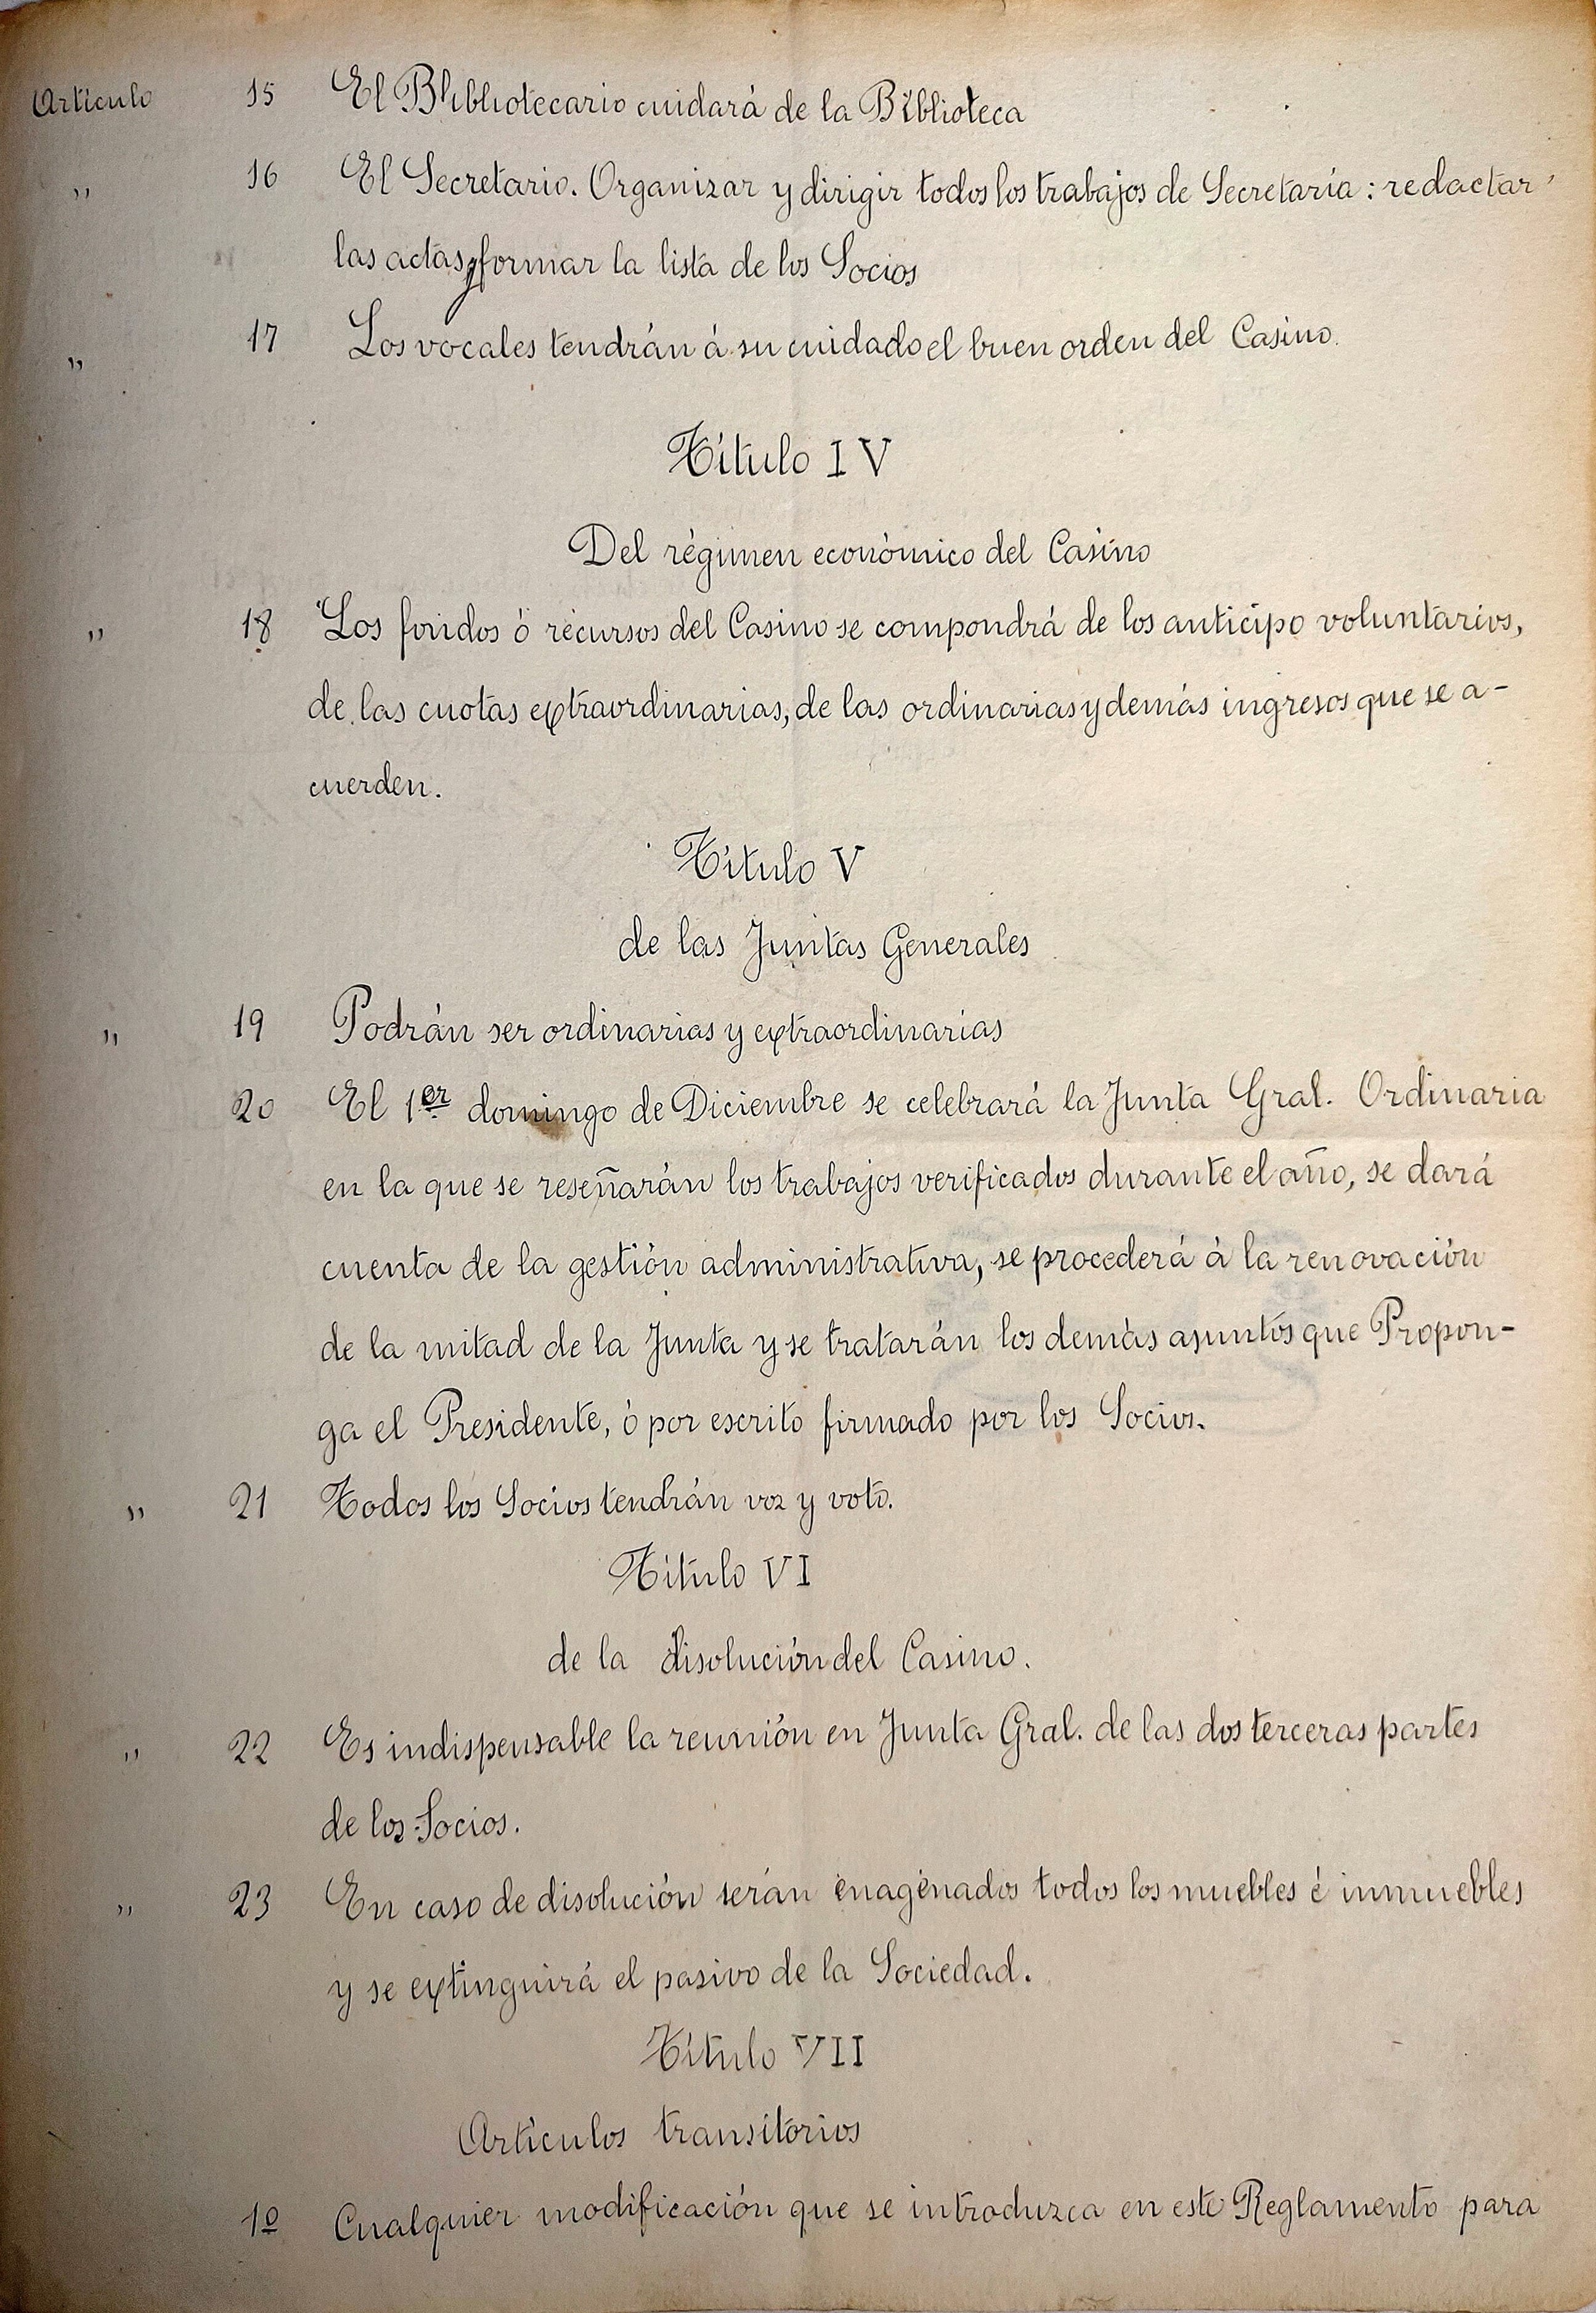 Artículo 15 El Blibliotecario cuidará de la Biblioteca
" 16 El Secretario. Organizar y dirigir todos los trabajos de Secretaría: redactar
las actas y formar la lista de los Socios
" 17 Los vocales tendrán á su cuidado el buen orden del Casino.
Título IV
Del régimen económico del Casino
" 18 Los fondos ó recursos del Casino se compondrá de los anticipo voluntarios,
de las cuotas extraordinarias, de las ordinarias y demás ingresos que se a-
cuerden.
Título V
de las Juntas Generales
" 19 Podrán ser ordinarias y extraordinarias
20 El 1er domingo de Diciembre se celebrará la Junta Gral. Ordinaria
en la que se reseñarán los trabajos verificados durante el año, se dará
cuenta de la gestión administrativa, se procederá á la renovación
de la mitad de la Junta y se tratarán los demás asuntos que Propon-
ga el Presidente, ó por escrito firmado por los Socios.
" 21 Todos los Socios tendrán voz y voto.
Título VI
de la disolución del Casino.
" 22 Es indispensable la reunión en Junta Gral. de las dos terceras partes
de los Socios.
" 23 En caso de disolución serán enagenados todos los muebles é inmuebles
y se extinguirá el pasivo de la Sociedad.
Título VII
Artículos transitorios
1º Cualquier modificación que se introduzca en este Reglamento para